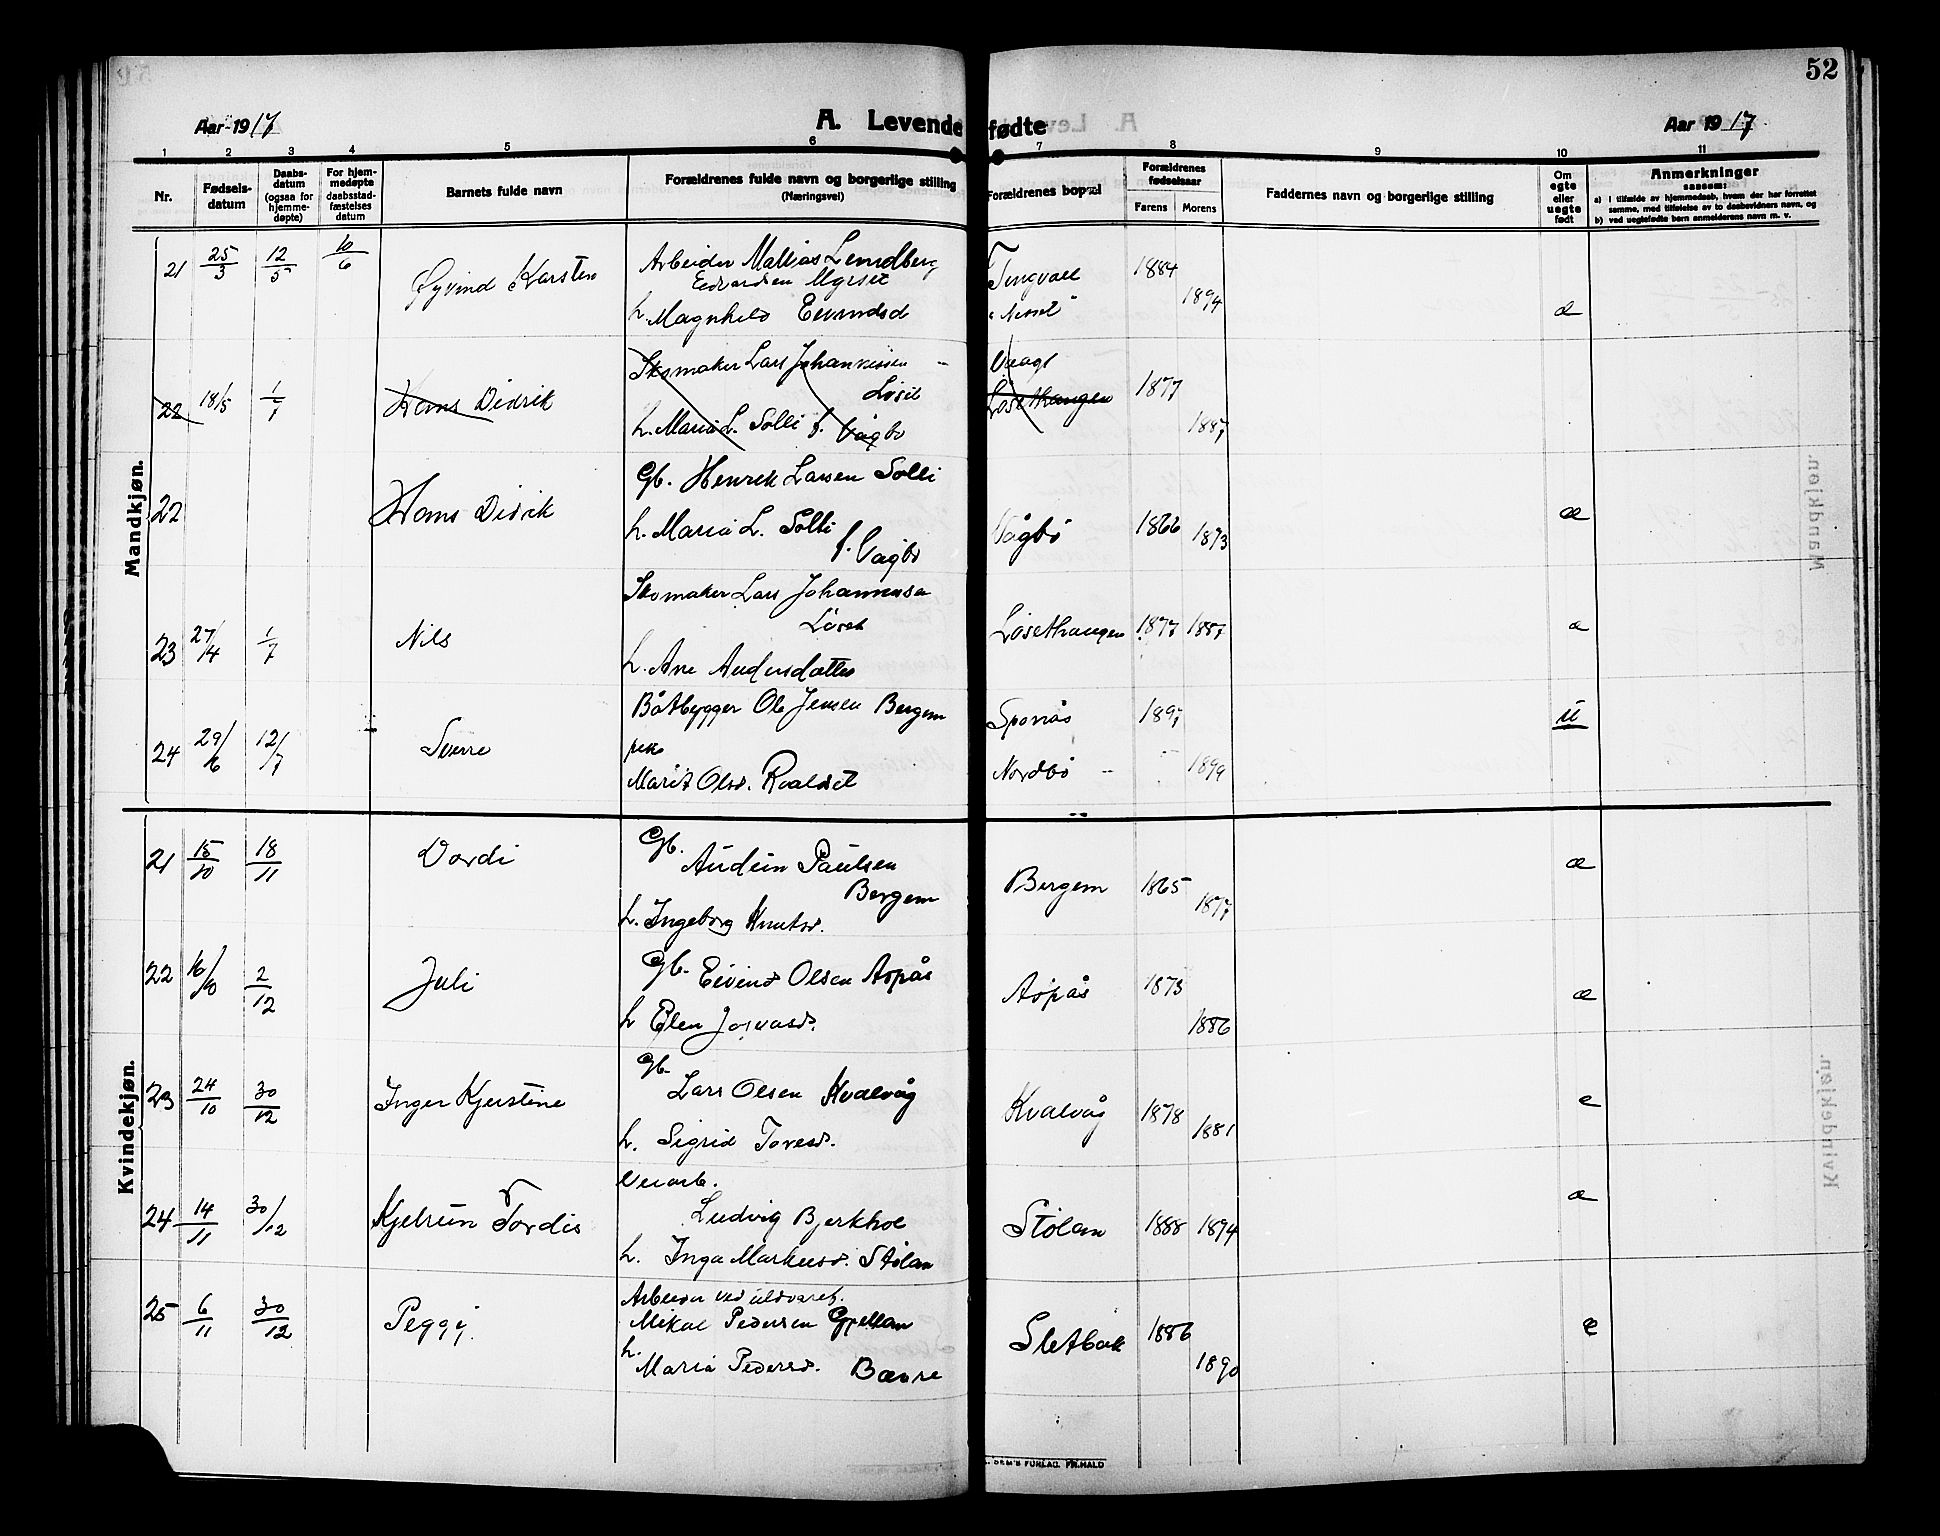 52
Aar 1917
A. Levende fødte
Aar 1917
1 2 3 4 5 6 7 8 9 10 11
Nr.
Fødsels-
datum
Daabs-
datum
(ogsaa for
hjemme-
døpte)
For hjem-
medøpte
daabsstad-
fæstelses
datum
Barnets fulde navn
Forældrenes fulde navn og borgerlige stilling
(Næringsvei)
Forældrenes bopæl
Forældrenes
fødselsaar
Farens Morens
Faddernes navn og borgerlige stilling
Om
egte
eller
uegte
født
Anmerkninger
saasom:
a) i tilfælde av hjemmedaab, hvem der har forrettet
samme, med tilføielse av to daabsvidners navn, og
b) ved uegtefødte børn anmelderens navn m. v.
Mandkjøn.
21 25/3 12/5 10/6 Øyvind Karsten
Arbeider Mathias Lundberg
Edvardsen
h. Magnhild
Tingvoll 1884
1894 æ
22 18/5 1/7 Hans Didrik
Skomaker Lars Johannessen
Løset
h. Maria L. Solli f. Vågbø
Vaagb
Løsethaugen 1877
1887
22 Hans Didrik
Gb. Henrik Larsen Solli
h. Maria L. Solli
f. Vågbø
Vågbø 1866 1873 æ
23 27/4 1/7 Nils
Skomaker Lars Johannessen
Løset
h. Ane Andersdatter
Løsethaugen 1877 1887 æ
24 29/6 12/7 Sverre
Båtbygger Ole Jensen Bergem
pike
Marit Olsd. Roaldset
Sponås 1897
Nordbø 1899
u
Kvindekjøn.
21 15/10 18/11 Vordi
Gb.
Audun Paulsen
Bergem
h. Ingeborg Knutsd.
Bergem 1865 1877 æ
22 16/10 2/12 Juli
Gb. Eivind Olsen Aspås
h Elen
Aspås 1873
1886 æ
23 24/10 30/12 Inger Kjerstine
Gb.
Lars Olsen Kvalvåg
h. Sigrid Toresd.
Kvalvåg 1878 1881 e
24 14/11 30/12 Kjelrun Tordis
Veiarb.
Ludvig Bjerkhol
h. Inga Markusd. Stølan
Stølan 1888 1894 æ
25 6/11 30/12 Peggy
Arbeider ved uldvaref.
Mikal Pedersen Gjellan
h.
Maria Pedersd. Bævre
Sletbak 1886
1890 e